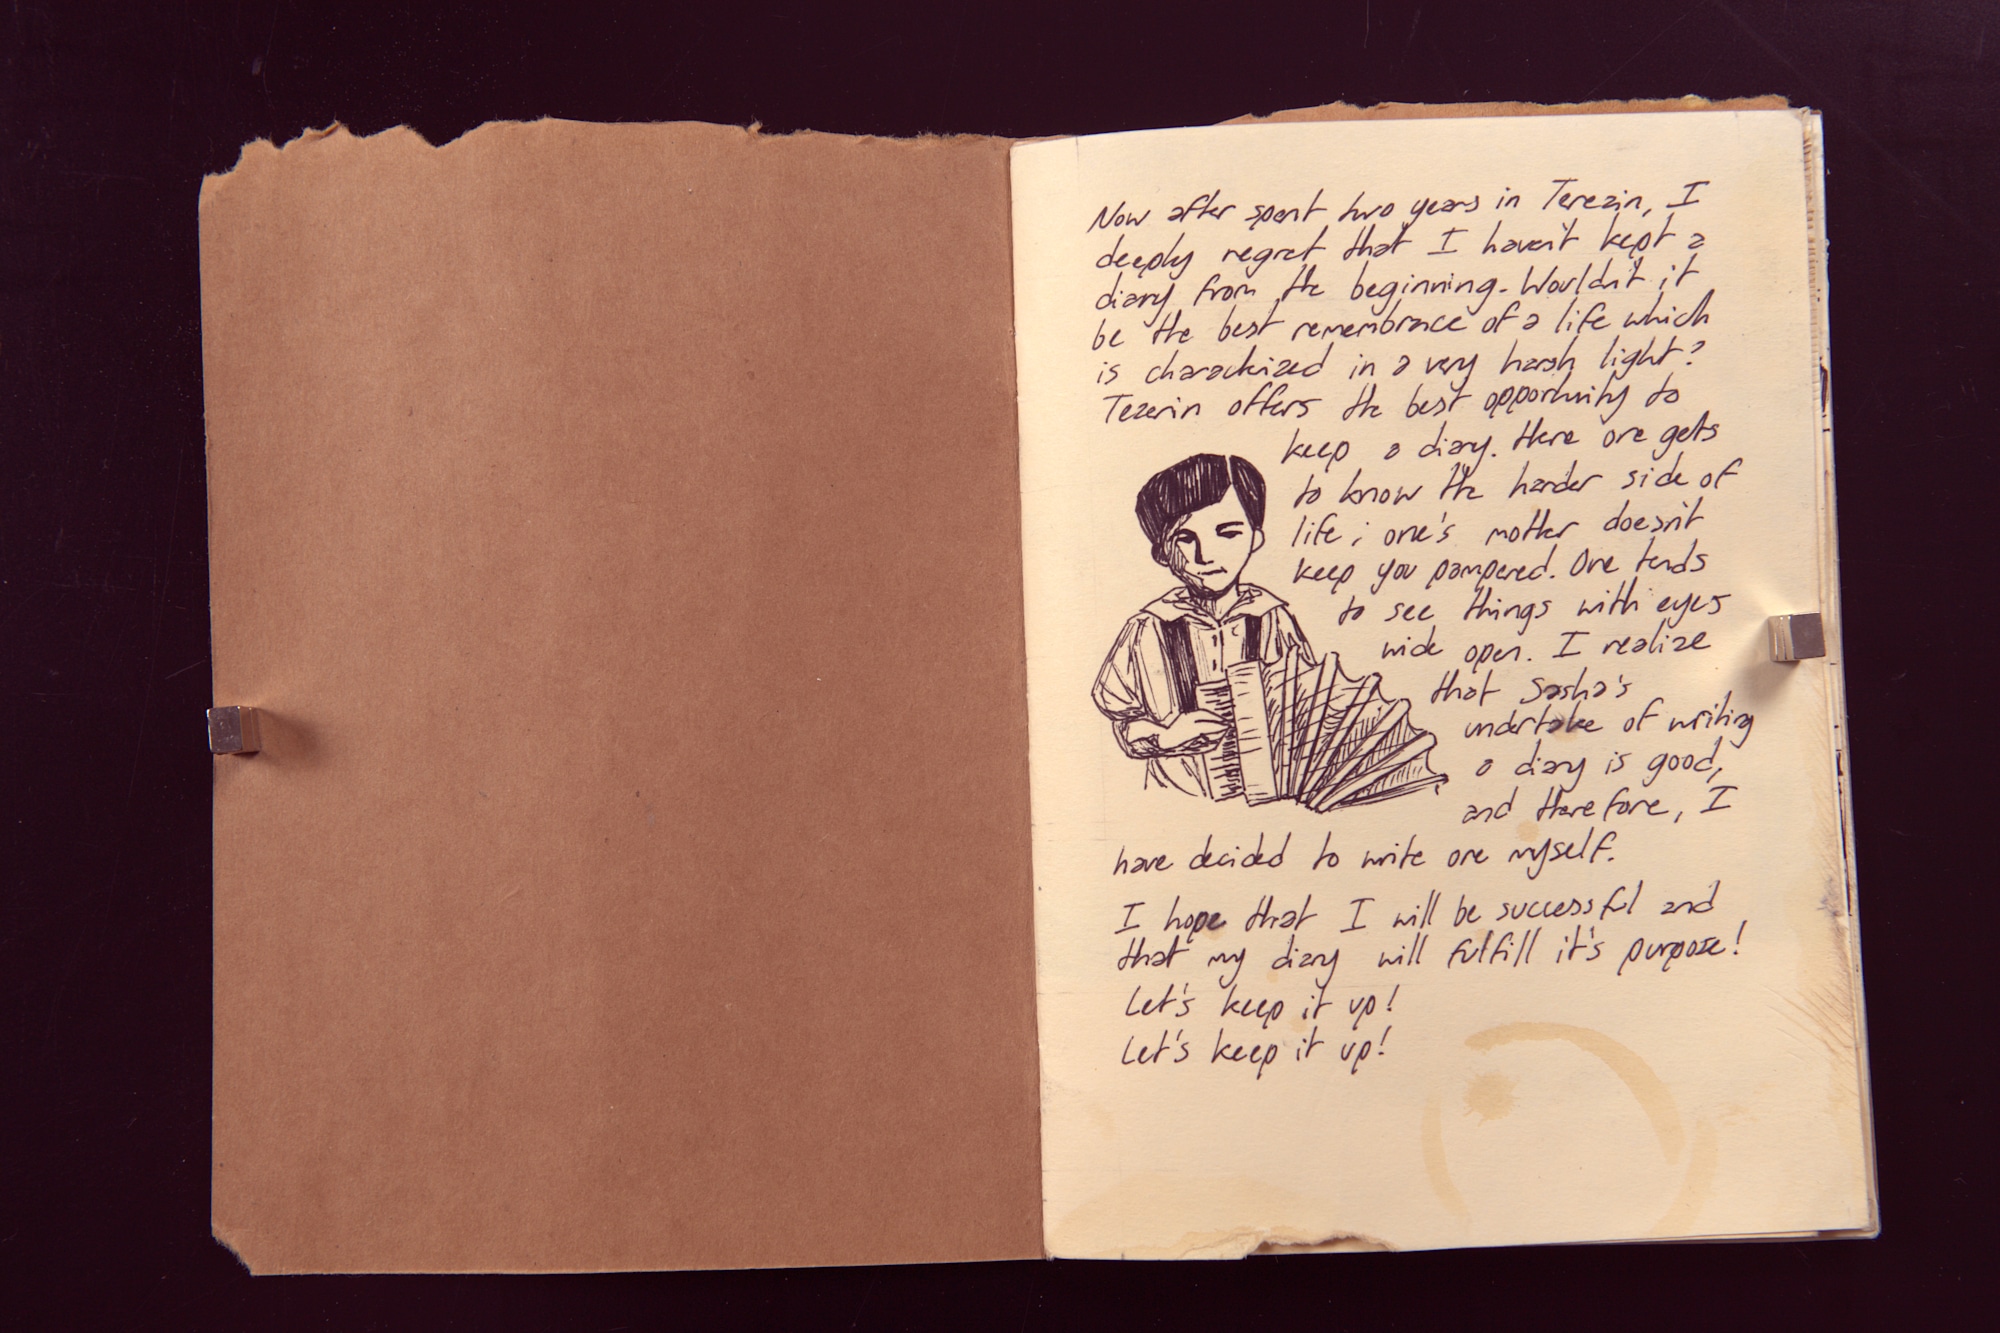 Now after spent two years in Terezin, I
deeply regret that I haven't kept a
diary from the beginning. Wouldn't it
be the best remembrance of a life which
is characterized in a very harsh light?
Tezerin offers the best opportunity to
keep a diary. Here one gets
to know the harder side of
life; one's mother doesn't
keep you pampered. One tends
to see things with eyes
wide open. I realize
that Sasha's
undertake of writing
a diary is good,
and therefore, I
have decided to write one myself.
I hope that I will be successful and
that my diary will fulfill it's purpose!
Let's keep it up!
Let's keep it up!